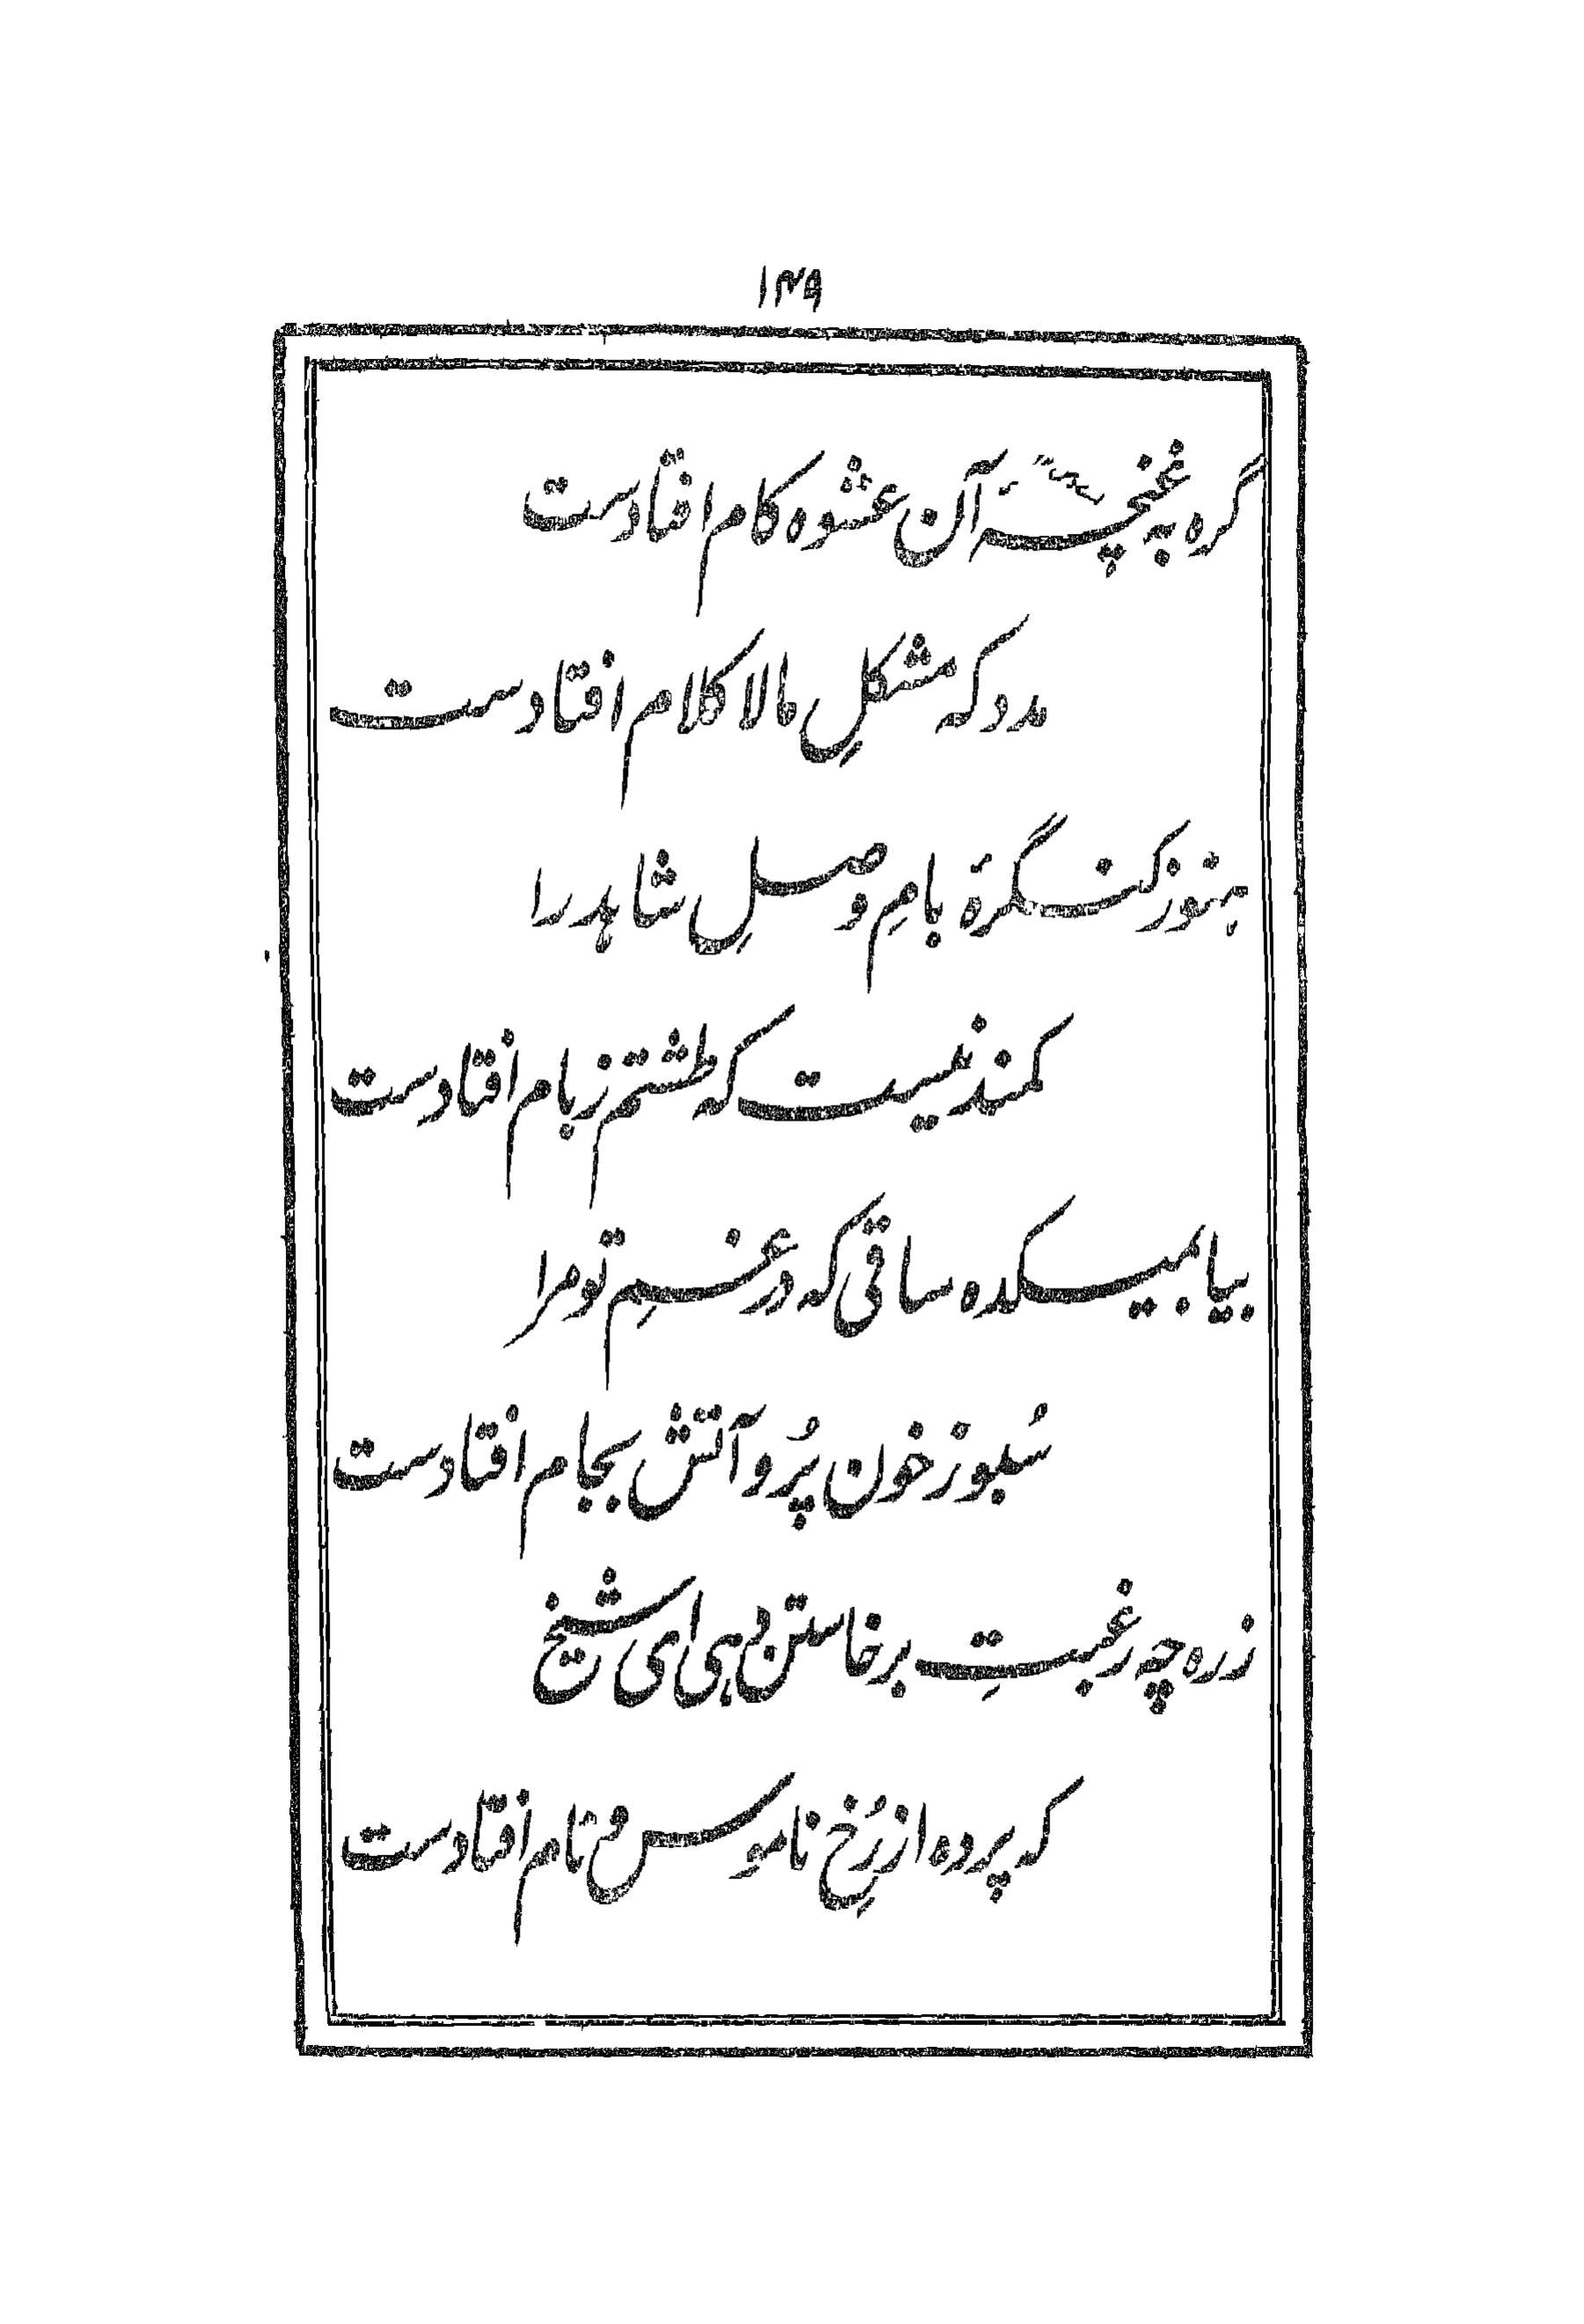 ۱۴۹
گره به غنچۂ آن عشوه کام افتادست
مدد که مشکلِ مالا کلام افتادست
ہنوز کنگرۂ بامِ وصلِ شاہد را
کمند نیست که طشتم ز بام افتادست
بیا بمیکده ساقی که در غمِ تو مرا
سُبو ز خون پُر و آتش بجام افتادست
ز ره چه رغبتِ برخاستن دہی ای شیخ
که پرده از رُخِ ناموس و نام افتادست